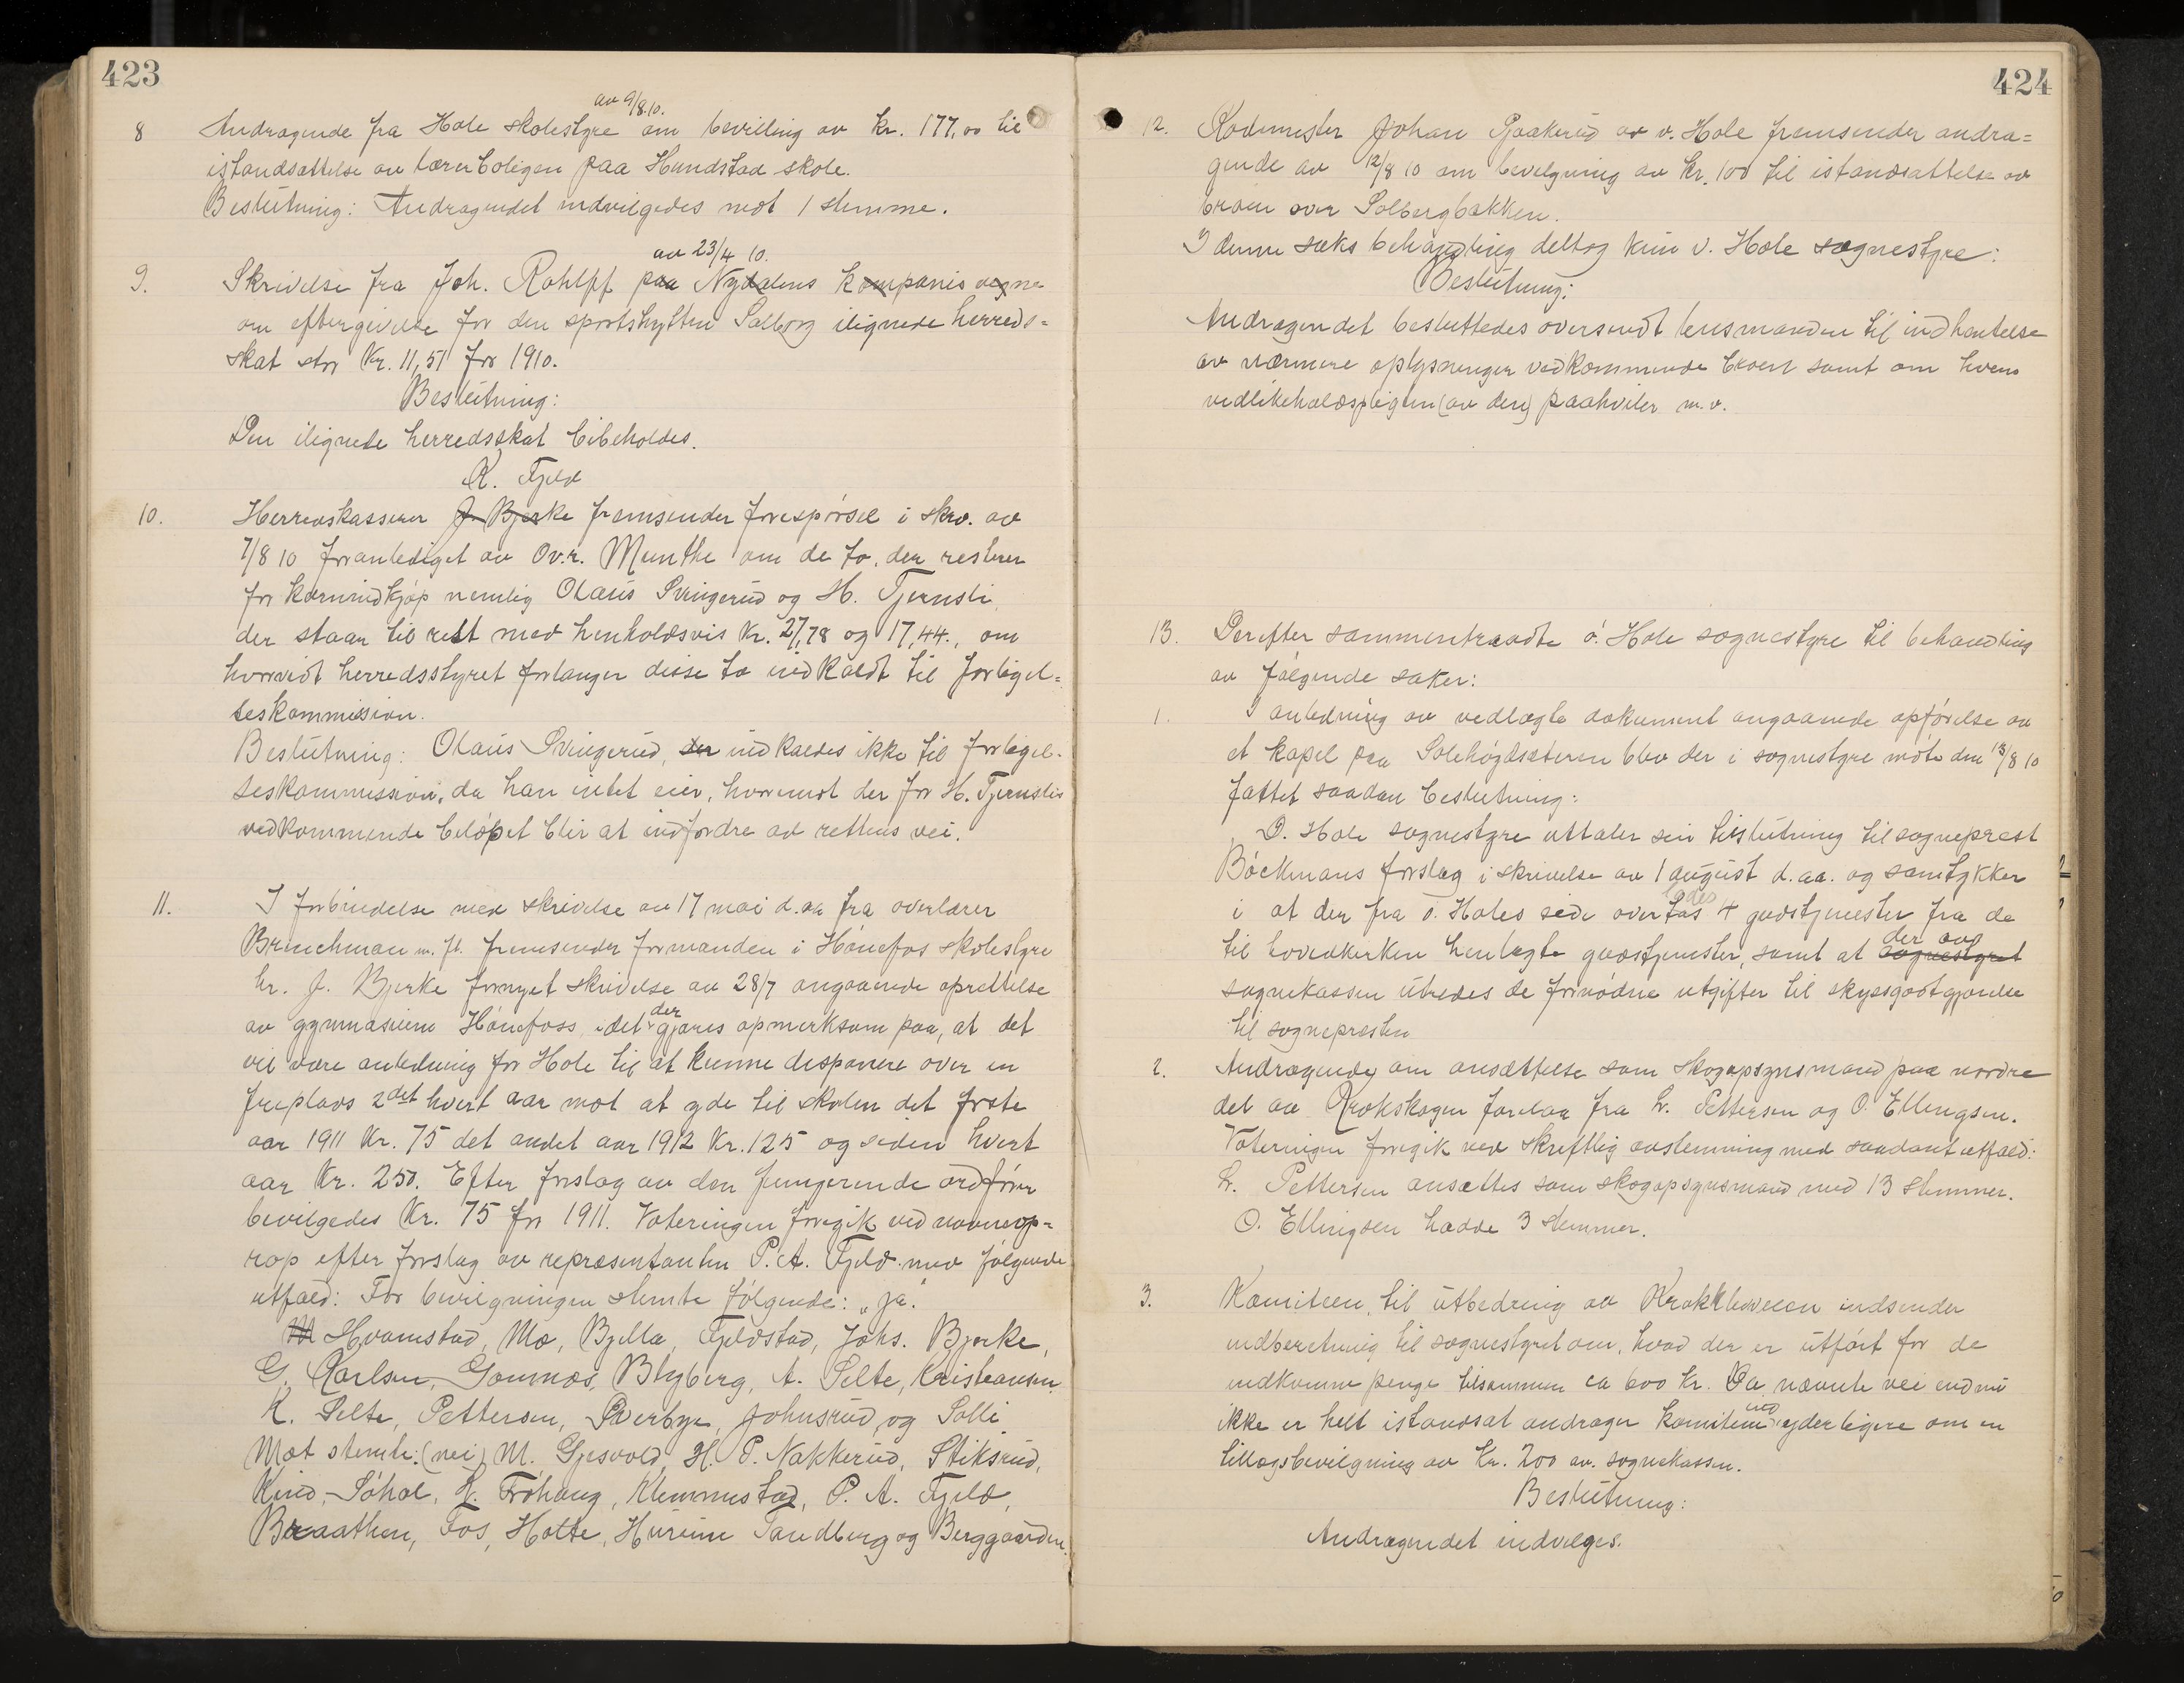 423
av 9/8.10.
8 Andragende fra Hole skolestyre om bevilling av kr. 177,00 til
istandsættelse av lærerboligen paa Hundstad skole.
Beslutning: Andragendet indvilgedes mot 1 stemme.
av 23/4 10.
9. Skrivelse fra Joh. Rohlpf paa Nydalens kompanis vegne
om eftergivelse for den sportshytten Solborg ilignede herreds=
skat stor Kr. 11,51 for 1910.
Beslutning:
Den ilignede herredsskat bibeholdes.
K. Fjeld
10. Herredskasserer J. Bjerke fremsender forespørsel i skr. av
7/8 10 foranlediget av Ov.r. Munthe om de to, der resterer
for kornindkjøp nemlig Olaus Svingerud og H. Tjernsli,
der staar til rest med henholdsvis Kr. 27,78 og 17,44., om
hvorvidt herredsstyret forlanger disse to indkaldt til forligel=
seskommission.
Beslutning: Olaus Svingerud, der indkaldes ikke til forligel-
seskommission, da han intet eier, hvorimot der for H. Tjernslis
vedkommende beløpet blir at indfordre ad rettens vei.
11. I forbindelse med skrivelse av 17 mai d.aa fra overlærer
Brinchman m. fl. fremsender formanden i Hønefos skolestyre
hr. J. Bjerke fornyet skrivelse av 28/7 angaaende oprettelse
av gymnasium Hønefoss, idet der gjøres opmerksom paa, at det
vil være anledning for Hole til at kunne disponere over en
friplads 2det hvert aar mot at yde til skolen det første
aar 1911 Kr. 75 det andet aar 1912 Kr. 125 og siden hvert
aar Kr. 250. Efter forslag av den fungerende ordfører
bevilgedes Kr. 75 for 1911. Voteringen foregik ved navneop=
rop efter forslag av repræsentanten P. A. Fjeld med følgende
utfald: For bevilgningen stemte følgende: „ja".
M Hvamstad, Mo, Bjella, Fjeldstad, Johs. Bjerke,
G. Karlsen, Gomnæs, Blyberg, A. Selte, Kristiansen
K. Selte, Pettersen, Øverbye, Johnsrud, og Solli
Mot stemte: (nei) M. Gjesvold, H. P. Nakkerud, Stiksrud,
Kind, Sóhol, L. Fröhaug, Klemmetstad, P. A. Fjeld,
Braathen, Fos, Holte, Hurum Tandberg og Berggaarden.
424
12. Rodemester Johan Pjaakerud av v. Hole fremsender andra=
gende av 12/8 10 om bevilgning av Kr. 100 til istandsættelse av
broen over Solbergbækken.
I denne saks behandling deltog kun v. Hole sognestyre:
Beslutning:
Andragendet besluttedes oversendt lensmanden til indhentelse
av nærmere oplysninger vedkommende broen samt om hvem
vedlikeholdspligten (av den) paahviler m.v.
13. Derefter sammentraadte ö. Hole sognestyre til behandling
av følgende saker:
1. I anledning av vedlagte dokument angaaende opførelse av
et kapel paa Solehøgdsæteren blev der i sognestyre møte den 13/8 10
fattet saadan beslutning:
„Ö. Hole sognestyre uttaler sin tilslutning til sogneprest
Böckmans forslag i skrivelse av 1 august d.aa. og samtykker
i at der fra ö. Holes side overlades 4 gudstjenester fra de
til hovedkirken henlagte gudstjenester, samt at sognestyret der av
sognekassen utredes de fornødne utgifter til skyssgodtgjørelse
til sognepresten
2. Andragende om ansættelse som skogopsynsmand paa nordre
del av Krokskogen forelaa fra L. Pettersen og O. Ellingsen.
Voteringen foregik ved skriftlig avstemning med saadant utfald:
L. Pettersen ansættes som skogopsynsmand med 13 stemmer.
O. Ellingsen hadde 3 stemmer.
3. Komiteen til utbedring av Krokkleveien indsender
indberetning til sognestyret om, hvad der er utført for de
indkomne penge tilsammen ca 600 kr. Da nævnte vei endnu
ikke er helt istandsat andrager komiteen yderligere om en
tillægsbevilgning av Kr. 200 av sognekassen.
Beslutning:
Andragendet indvilges.